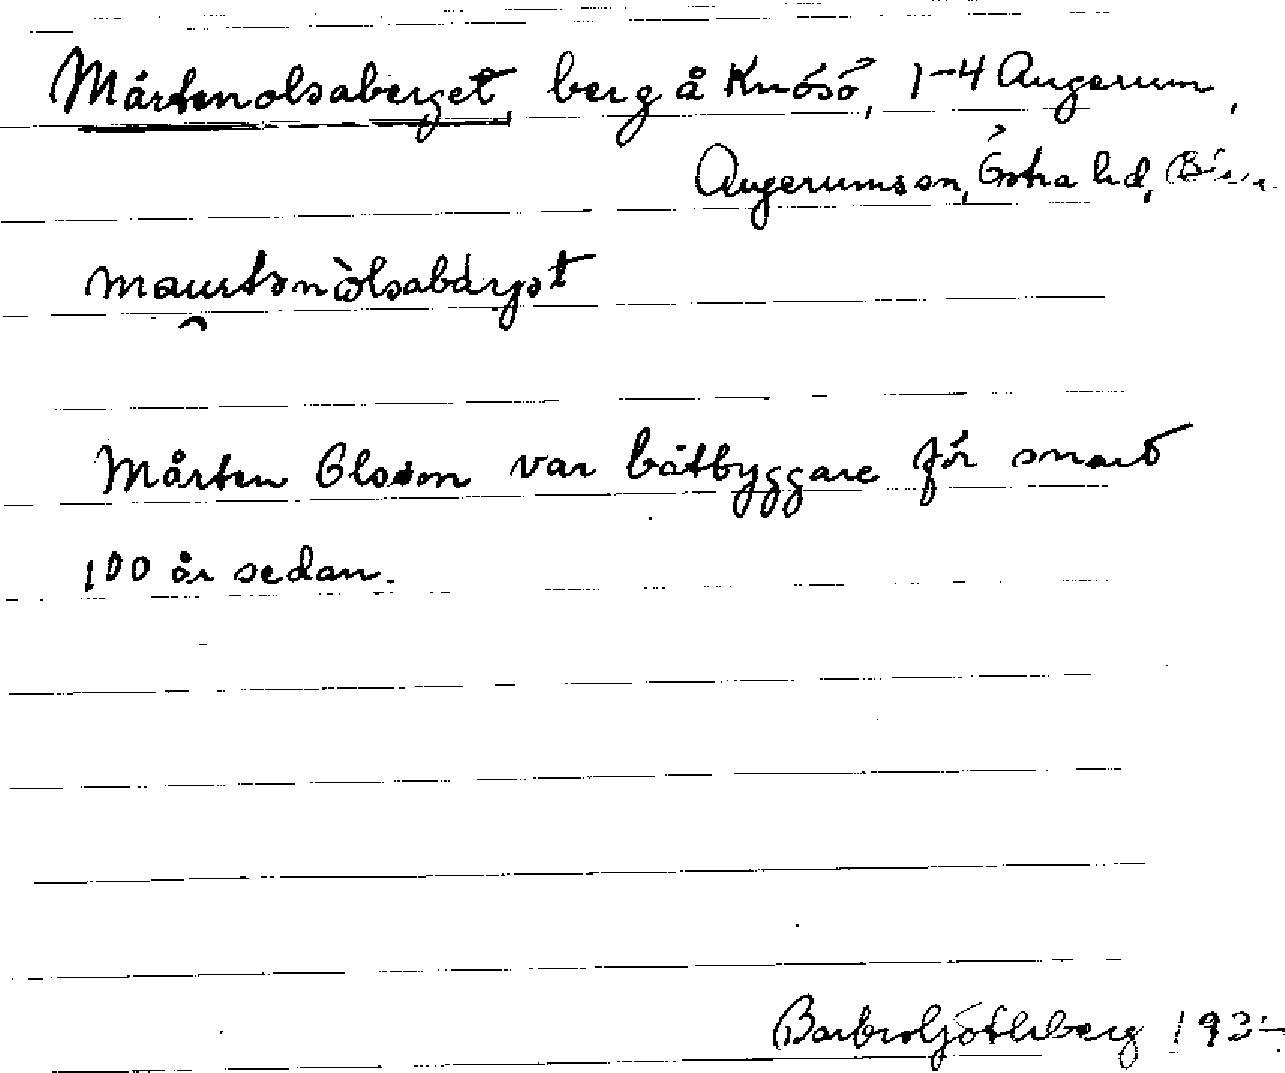 Mårtenolsaberget, berg å Knösö, 1-4 Augerum,
Augerums sn, Östra hd,
Mårten Olsson var båtbyggare för snart
100 år sedan.
Barbro Götherberg